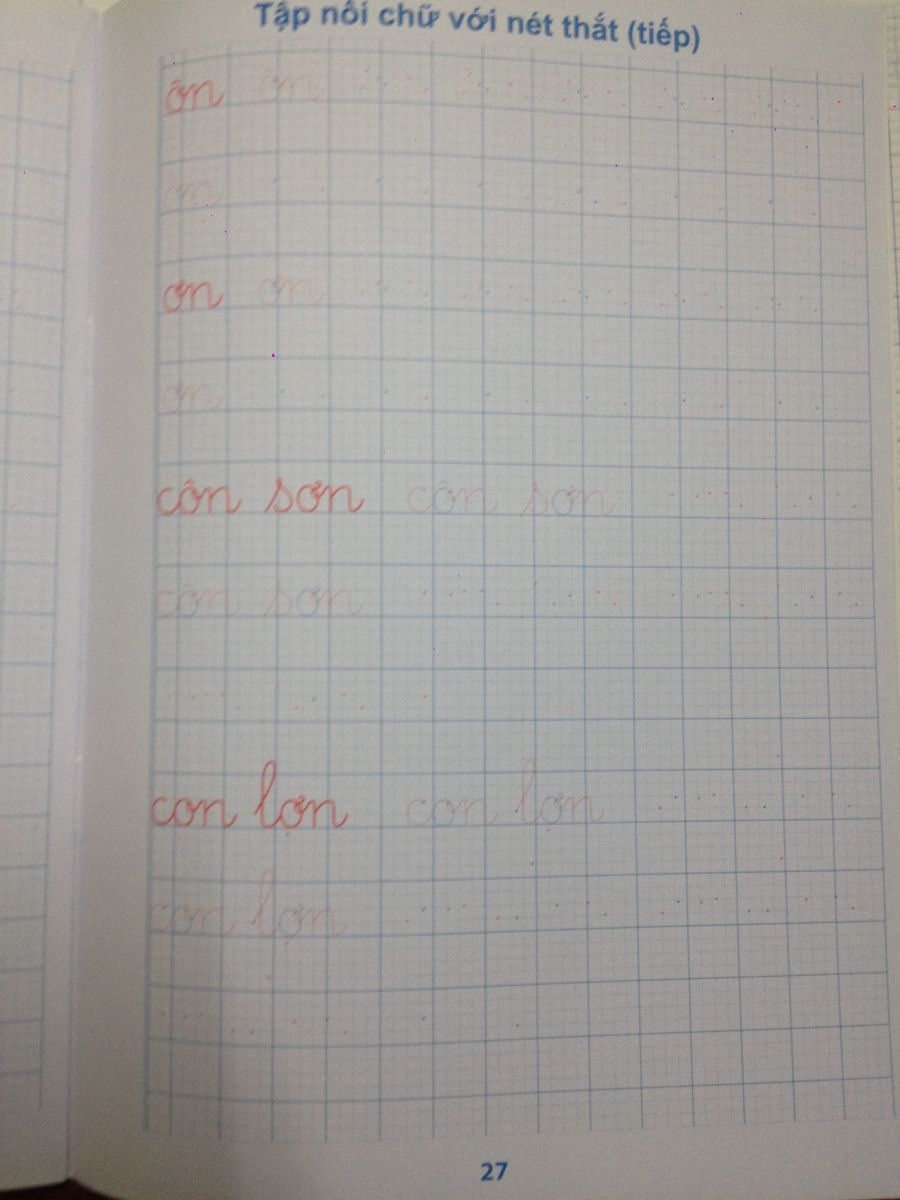 Tập nối chữ với nét thắt (tiếp)
ôn ôn
ôn
ơn ơn
ơn
côn sơn côn sơn
côn sơn
con lợn con lợn
con lợn
27